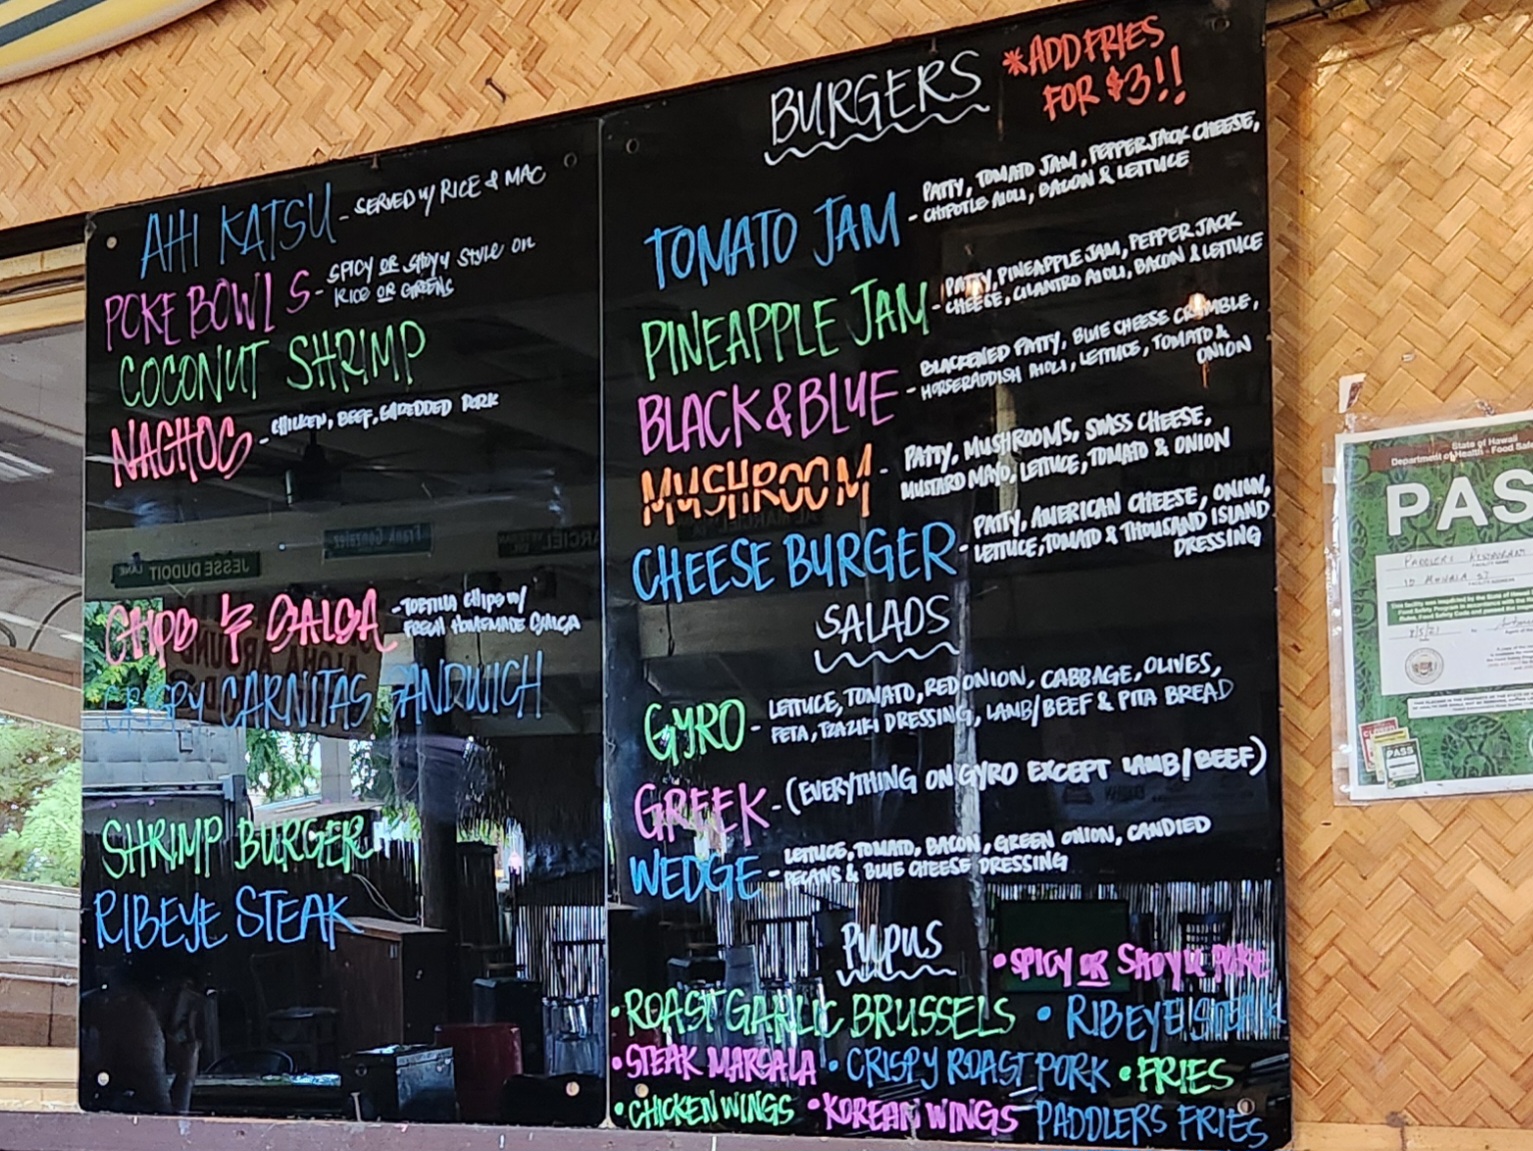 AHI KATSU - SERVED W/ RICE & MAC
POKE BOWLS - SPICY OR SHOYU STYLE ON
RICE OR GREENS
COCONUT SHRIMP
NACHOS - CHICKEN, BEEF, SHREDDED PORK
CHIPS & SALSA - TORTILLA CHIPS W/
FRESH HOMEMADE SALSA
CRISPY CARNITAS SANDWICH
SHRIMP BURGER
RIBEYE STEAK
BURGERS
*ADD FRIES
FOR $3!!
TOMATO JAM - PATTY, TOMATO JAM, PEPPERJACK CHEESE,
CHIPOTLE AIOLI, BACON & LETTUCE
PINEAPPLE JAM - PATTY, PINEAPPLE JAM, PEPPER JACK
CHEESE, CILANTRO AIOLI, BACON & LETTUCE
BLACK&BLUE - BLACKENED PATTY, BLUE CHEESE CRUMBLE,
HORSERADDISH AIOLI, LETTUCE, TOMATO &
ONION
MUSHROOM - PATTY, MUSHROOMS, SWISS CHEESE,
MUSTARD MAYO, LETTUCE, TOMATO & ONION
CHEESE BURGER - PATTY, AMERICAN CHEESE, ONION,
LETTUCE, TOMATO & THOUSAND ISLAND
DRESSING
SALADS
GYRO - LETTUCE, TOMATO, RED ONION, CABBAGE, OLIVES,
FETA, TZAZIKI DRESSING, LAMB/BEEF & PITA BREAD
GREEK - (EVERYTHING ON GYRO EXCEPT LAMB/BEEF)
WEDGE - LETTUCE, TOMATO, BACON, GREEN ONION, CANDIED
PECANS & BLUE CHEESE DRESSING
PUPUS
• SPICY OR SHOYU POKE
• ROAST GARLIC BRUSSELS • RIBEYE STEAK
• STEAK MARSALA • CRISPY ROAST PORK • FRIES
• CHICKEN WINGS • KOREAN WINGS PADDLERS FRIES
JESSE DUDOIT LANE
Frank Gonzalez
State of Hawaii
Department of Health - Food
PAS
PADDLERS
FACILITY NAME
FACILITY ADDRESS
PASS